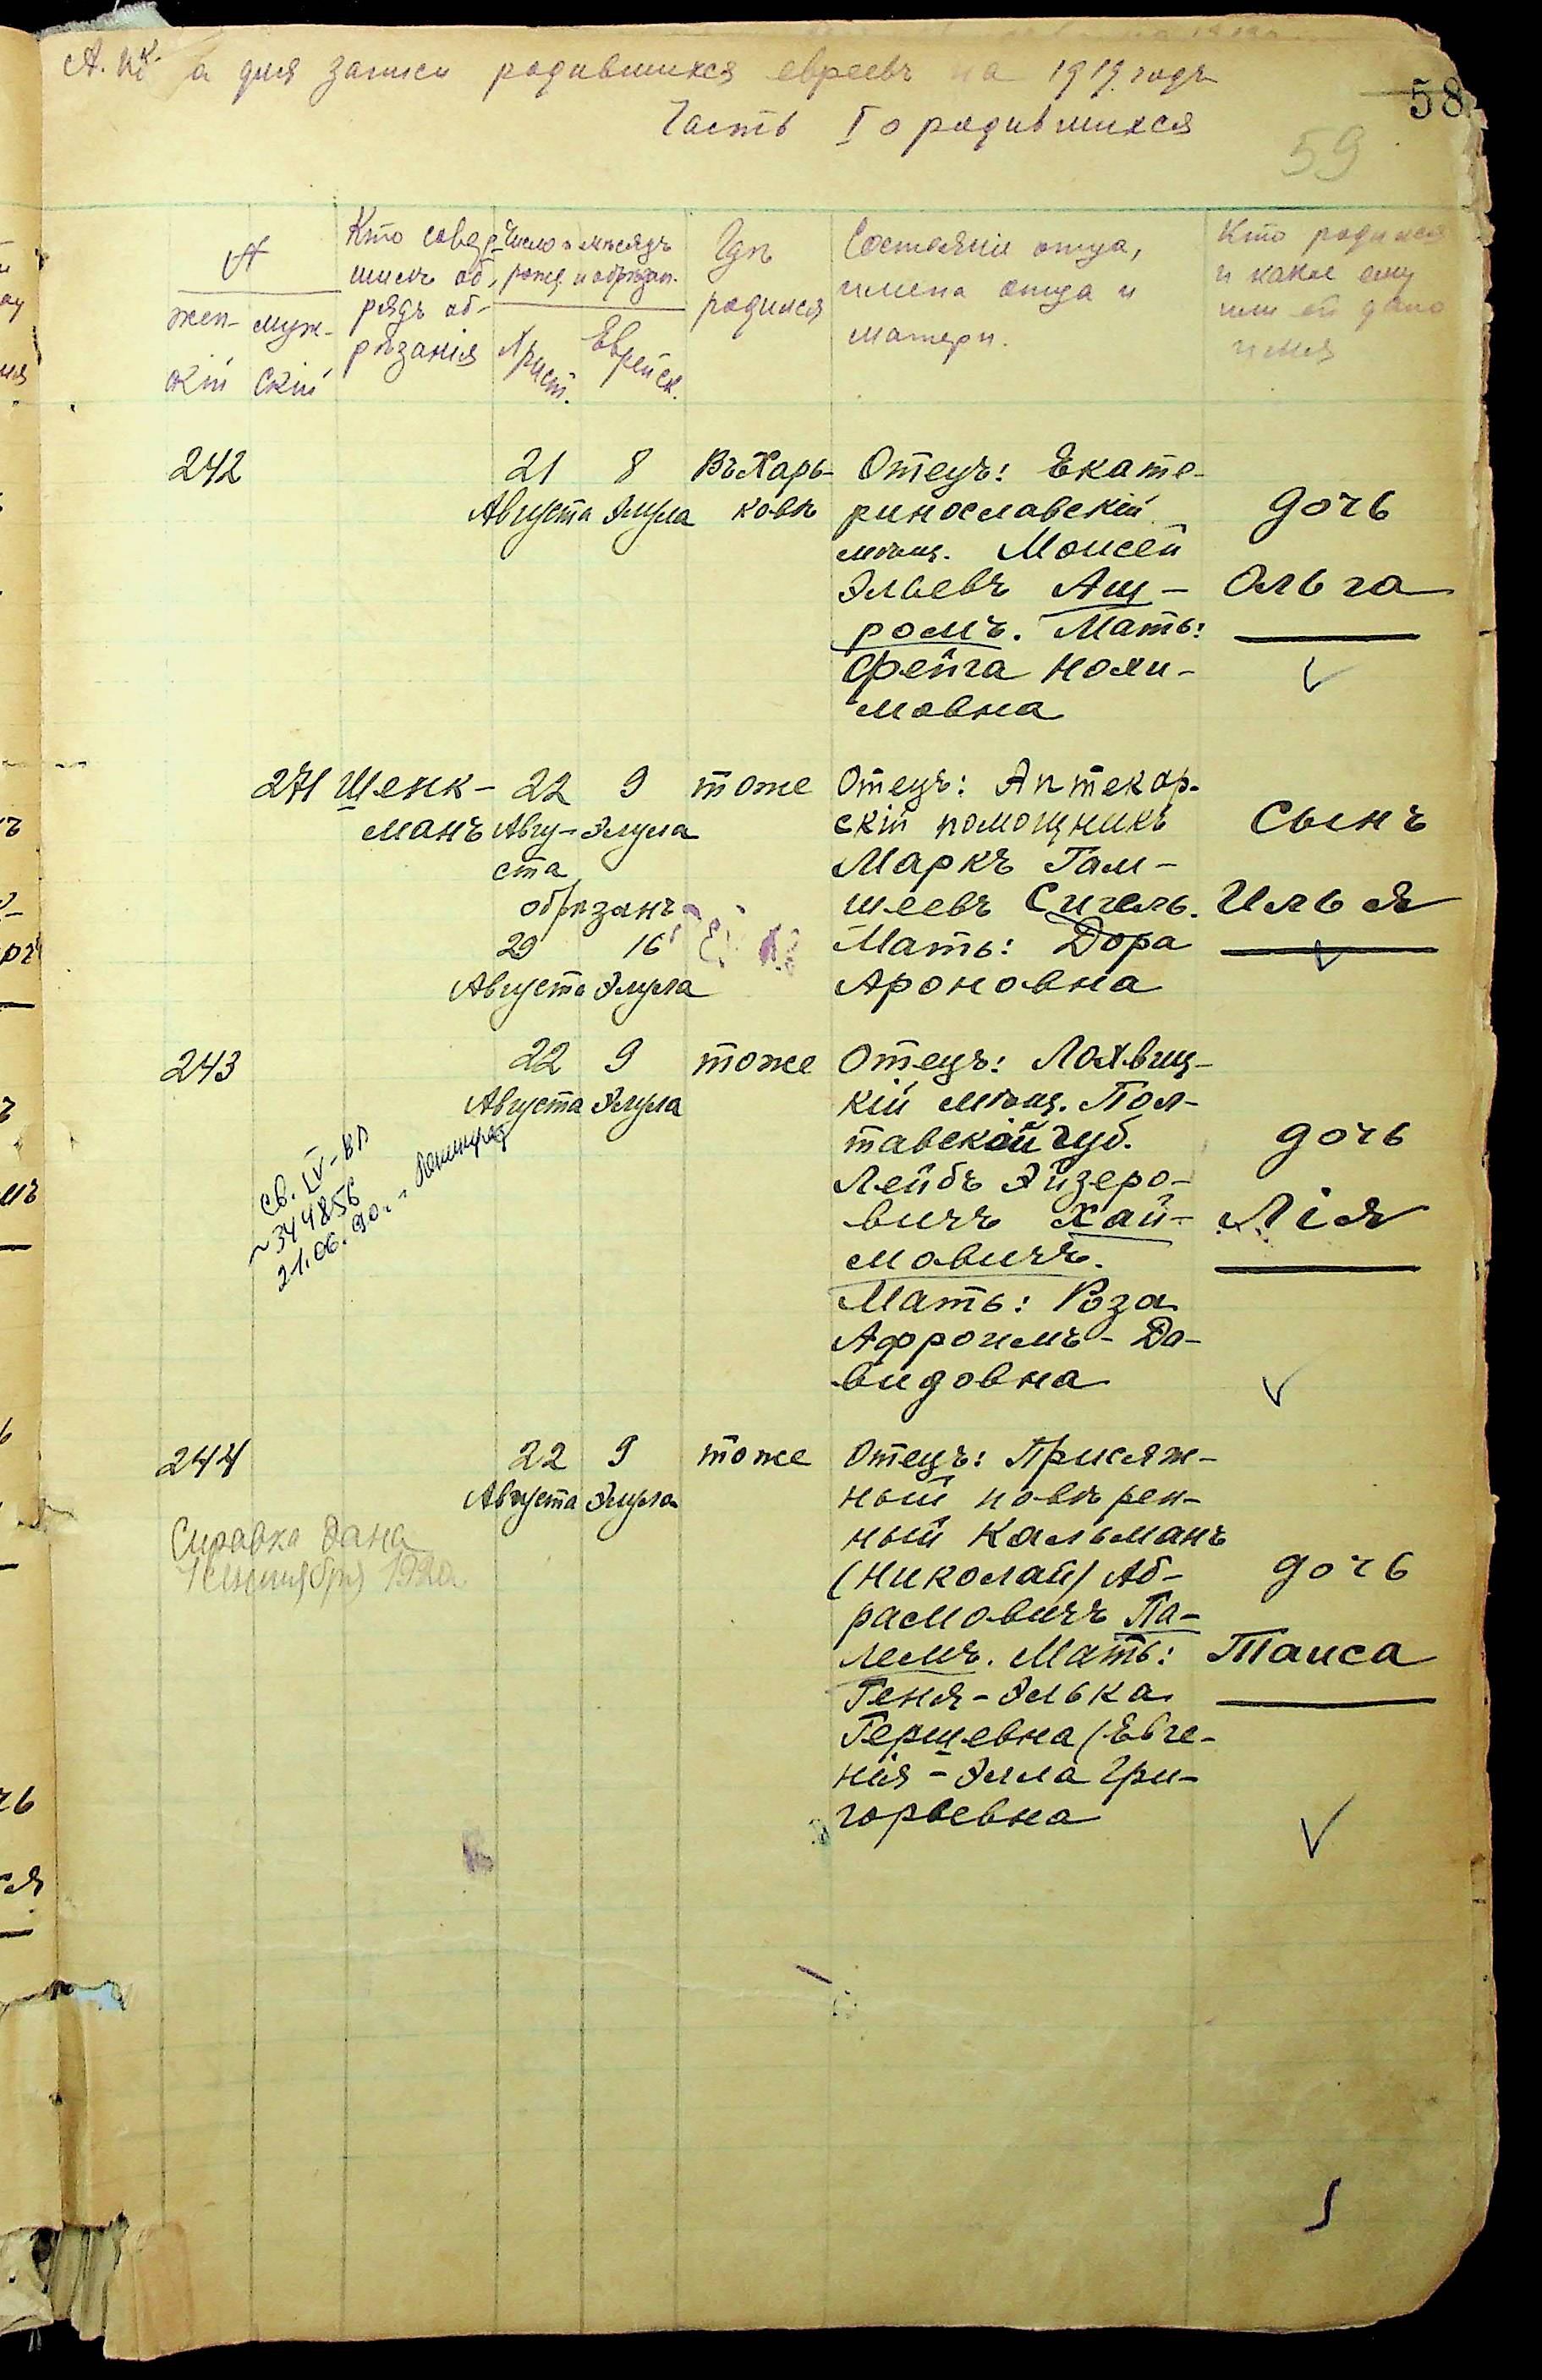 а для записи родившихся евреевъ на 1919 годъ
Часть I о родившихся
58
59
№
жен-ский
муж-скій
Кто совер-
шилъ об-
рядъ об-
рѣзанія
Число и мѣсяцъ
рожд. и обрѣзан.
Христ.
Еврейск.
Гдѣ
родился
Состояніе отца,
имена отца и
матери.
Кто родился
и какое ему
или ей дано
имя
242
21 8
Августа Элула
Въ Харь-
ковѣ
Отецъ: Екате-
ринославскій
мѣщ. Моисей
Эльевъ Аш-
ромъ. Мать:
Фейга Нохи-
мовна
дочь
Ольга
271
Шенк-
манъ
22 9
Авгу- Элула
ста
обрѣзанъ
29 16
Августа Элула
тоже
Отецъ: Аптекар-
скій помощникъ
Маркъ Гам-
шеевъ Сигель.
Мать: Дора
Ароновна
сынъ
Илья
243
22 9
Августа Элула
тоже
Отецъ: Лохвиц-
кій мѣщ. Пол-
тавской губ.
Лейбъ Эйзеро-
вичъ Хай-
мовичъ.
Мать: Роза
Афроимъ-Да-
видовна
дочь
Лія
св. IV-ВЛ
~344856
21.06.90г.
244
22 9
Августа Элула
тоже
Отецъ: Присяж-
ный повѣрен-
ный Кальманъ
(Николай) Аб-
рамовичъ Па-
лемъ. Мать:
Геня-Элька
Гершевна (Евге-
нія-Элла Гри-
горьевна
дочь
Таиса
Справка дана